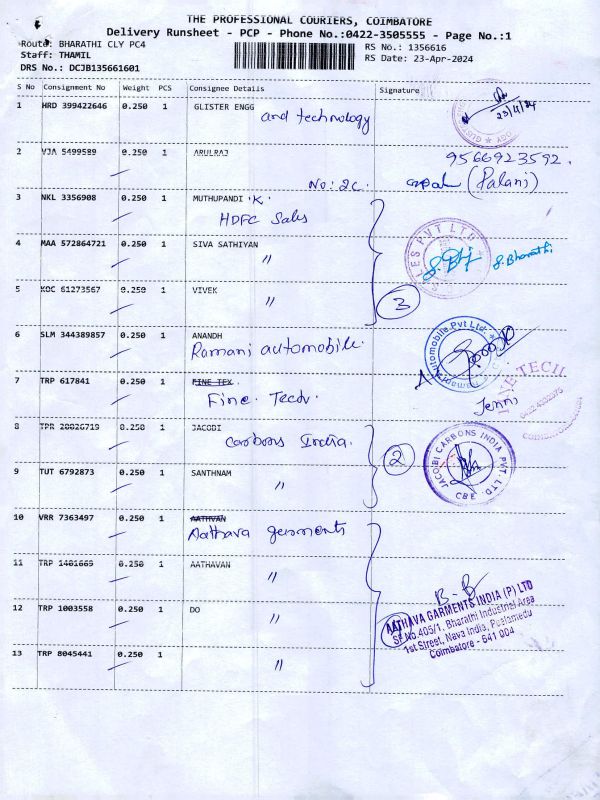 THE PROFESSIONAL COURIERS, COIMBATORE
Delivery Runsheet - PCP - Phone No.:0422-3505555 - Page No.:1
Route: BHARATHI CLY PC4
RS No.: 1356616
Staff: THAMIL
RS Date: 23-Apr-2024
DRS No.: DCJB135661601
S No Consignment No Weight PCS Consignee Details Signature
1 HRD 399422646 0.250 1 GLISTER ENGG
and technology
23/4/24
2 VJA 5499589 0.250 1 ARULRAJ
9566923592.
No: 2C. (Palani)
3 NKL 3356908 0.250 1 MUTHUPANDI K.
HDFC Sales
4 MAA 572864721 0.250 1 SIVA SATHIYAN
"
SALES PVT LTD
S. Bharathi
5 KOC 61273567 0.250 1 VIVEK
"
3
6 SLM 344389857 0.250 1 ANANDH
Ramani automobile.
Automobile Pvt Ltd.
7 TRP 617841 0.250 1 FINE TEX
Fine. Tech.
Jenni
FINE TECH
8 TPR 20026719 0.250 1 JACOBI
Carbons India.
2
JACOBI CARBONS INDIA PVT. LTD.
CBE
9 TUT 6792873 0.250 1 SANTHNAM
"
10 VRR 7363497 0.250 1 AATHVAN
Aathava garments
11 TRP 1401669 0.250 1 AATHAVAN
"
12 TRP 1003558 0.250 1 DO
"
4
AATHAVA GARMENTS INDIA (P) LTD
SF.No.405/1, Bharathi Industrial Area
1st Street, Nava India, Peelamedu
Coimbatore - 641 004
13 TRP 8045441 0.250 1
"